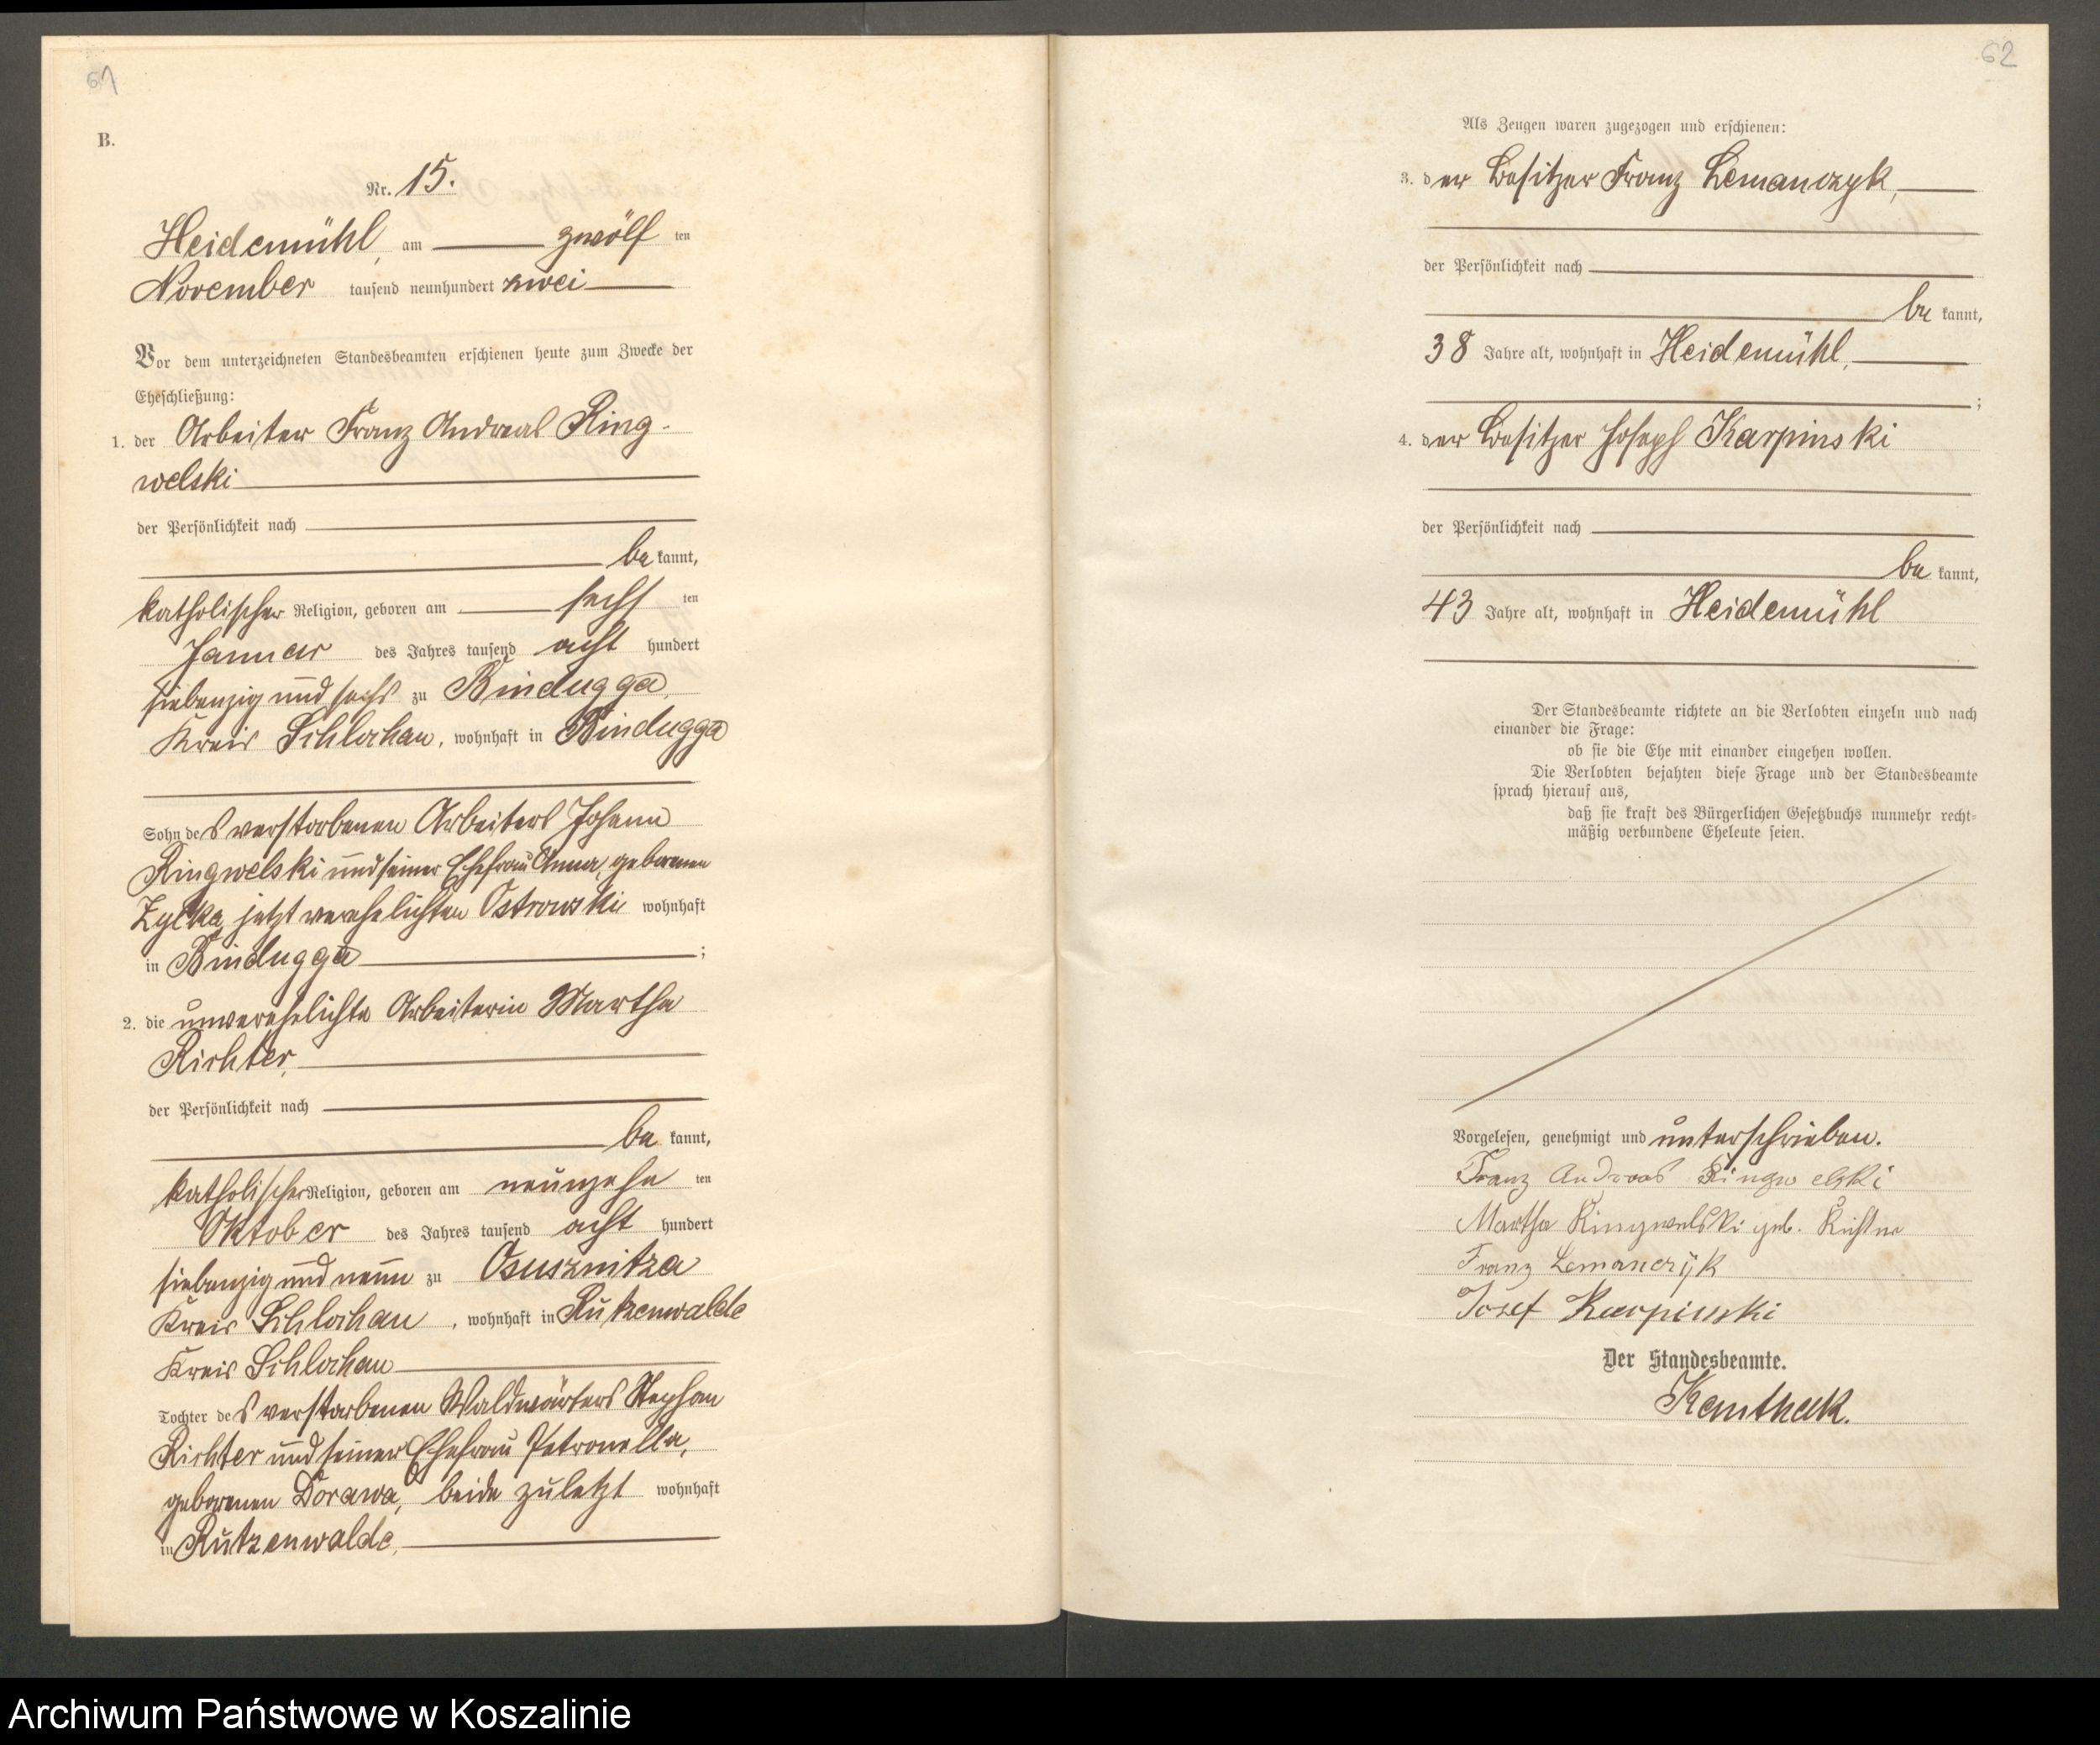 61
B.
Nr. 15.
Heidemühl, am zwölf ten
November tausend neunhundert zwei
Vor dem unterzeichneten Standesbeamten erschienen heute zum Zwecke der
Eheschließung:
1. der Arbeiter Franz Andreas Ring-
welski
der Persönlichkeit nach
be kannt,
katholischer Religion, geboren am sechs ten
Januar des Jahres tausend acht hundert
siebenzig und sechs zu Bindugga,
Kreis Schlochau, wohnhaft in Bindugga
Sohn des verstorbenen Arbeiters Johann
Ringwelski und seiner Ehefrau Anna, geborenen
Zylka, jetzt verehelichten Ostrowski wohnhaft
in Bindugga ;
2. die unverehelichte Arbeiterin Martha
Richter,
der Persönlichkeit nach
be kannt,
katholischer Religion, geboren am neunzehn ten
Oktober des Jahres tausend acht hundert
siebenzig und neun zu Osusznitza
Kreis Schlochau, wohnhaft in Rutzenwalde
Kreis Schlochau
Tochter des verstorbenen Waldwärters Stephan
Richter und seiner Ehefrau Petronella,
geborenen Dorawa, beide zuletzt wohnhaft
in Rutzenwalde,
62
Als Zeugen waren zugezogen und erschienen:
3. der Besitzer Franz Lemanczyk,
der Persönlichkeit nach
be kannt,
38 Jahre alt, wohnhaft in Heidemühl,
;
4. der Besitzer Joseph Karpinski
der Persönlichkeit nach
be kannt,
43 Jahre alt, wohnhaft in Heidemühl
Der Standesbeamte richtete an die Verlobten einzeln und nach
einander die Frage:
ob sie die Ehe mit einander eingehen wollen.
Die Verlobten bejahten diese Frage und der Standesbeamte
sprach hierauf aus,
daß sie kraft des Bürgerlichen Gesetzbuchs nunmehr recht-
mäßig verbundene Eheleute seien.
Vorgelesen, genehmigt und unterschrieben.
Franz Andreas Ringwelski
Martha Ringwelski geb. Richter
Franz Lemanczyk
Josef Karpinski
Der Standesbeamte.
Archiwum Państwowe w Koszalinie